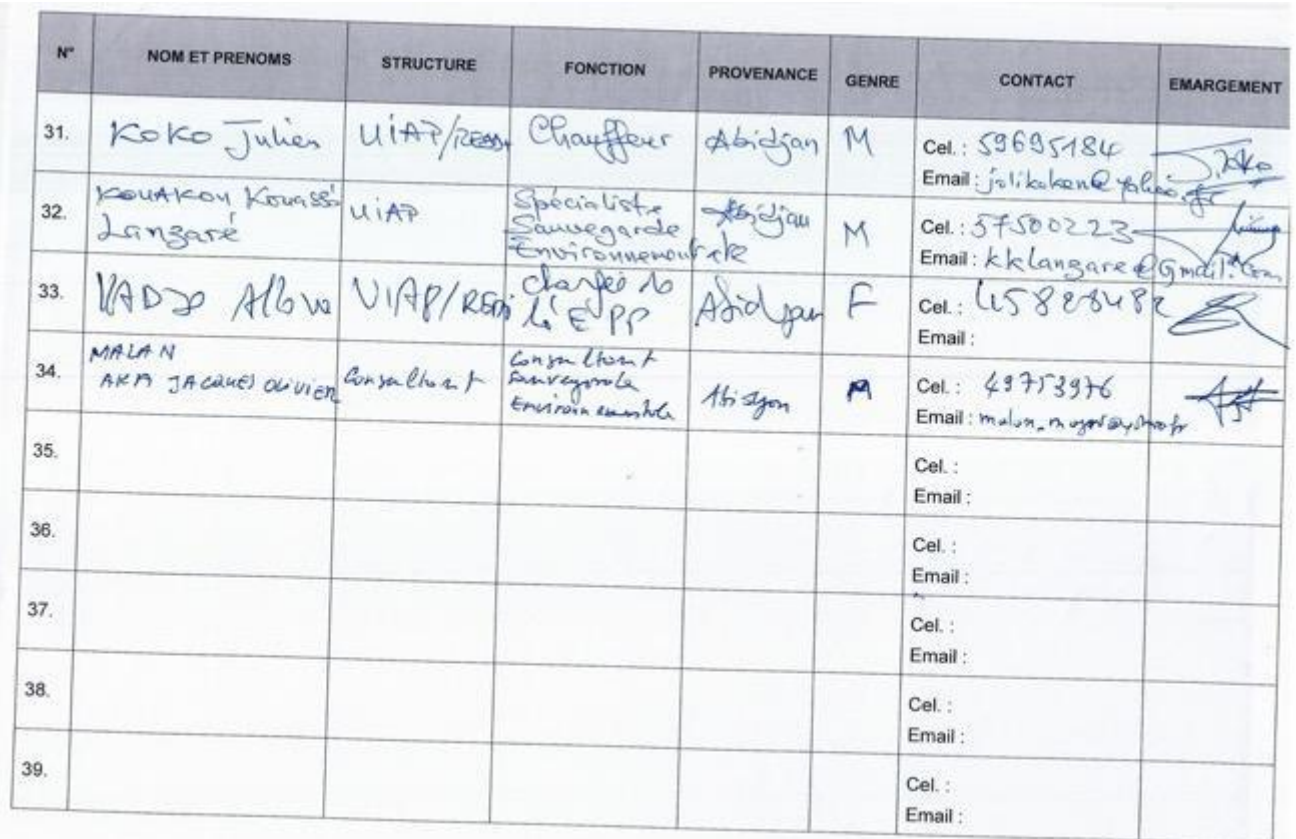 N° NOM ET PRENOMS STRUCTURE FONCTION PROVENANCE GENRE CONTACT EMARGEMENT
31. Koko Julien UIAP/REDD Chauffeur Abidjan M Cel. : 59695184
Email : jolikoken@yahoo.fr
32. Kouakou Kouassi
Lanzaré UIAP Spécialiste
Sauvegarde
Environnementale Abidjan M Cel. : 57500223
Email : kklanzare@Gmail.com
33. UIAP/REDD chargée de
l'EPP Abidjan F Cel. : 45828482
Email :
34. MALAN
AKA JACQUES OLIVIER Consultant Consultant
Sauvegarde
Environnementale Abidjan M Cel. : 49753976
Email :
35. Cel. :
Email :
36. Cel. :
Email :
37. Cel. :
Email :
38. Cel. :
Email :
39. Cel. :
Email :